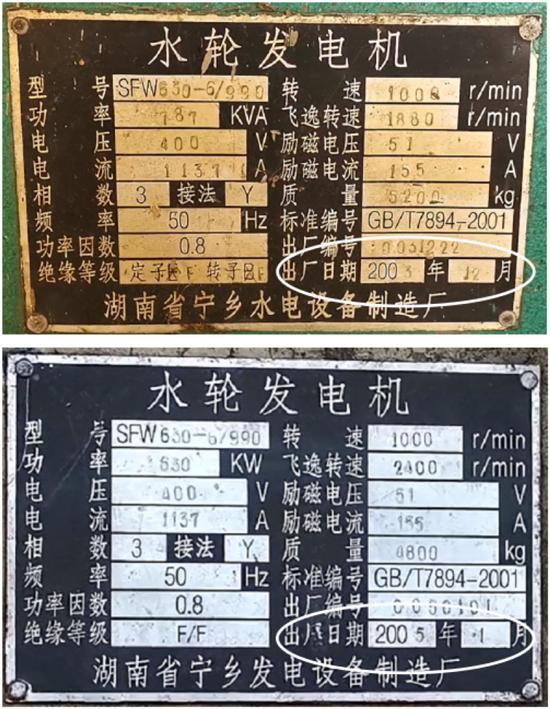 水轮发电机
型号 SFW630-6/990 转速 1000 r/min
功率 787 KVA 飞逸转速 1880 r/min
电压 400 V 励磁电压 51 V
电流 1137 A 励磁电流 155 A
相数 3 接法 Y 质量 5200 kg
频率 50 Hz 标准编号 GB/T7894-2001
功率因数 0.8 出厂编号 0031222
绝缘等级 定子F 转子F 出厂日期 2003 年 12 月
湖南省宁乡水电设备制造厂
水轮发电机
型号 SFW630-6/990 转速 1000 r/min
功率 630 KW 飞逸转速 2400 r/min
电压 400 V 励磁电压 51 V
电流 1137 A 励磁电流 155 A
相数 3 接法 Y 质量 4800 kg
频率 50 Hz 标准编号 GB/T7894-2001
功率因数 0.8 出厂编号 0050101
绝缘等级 F/F 出厂日期 2005 年 1 月
湖南省宁乡发电设备制造厂